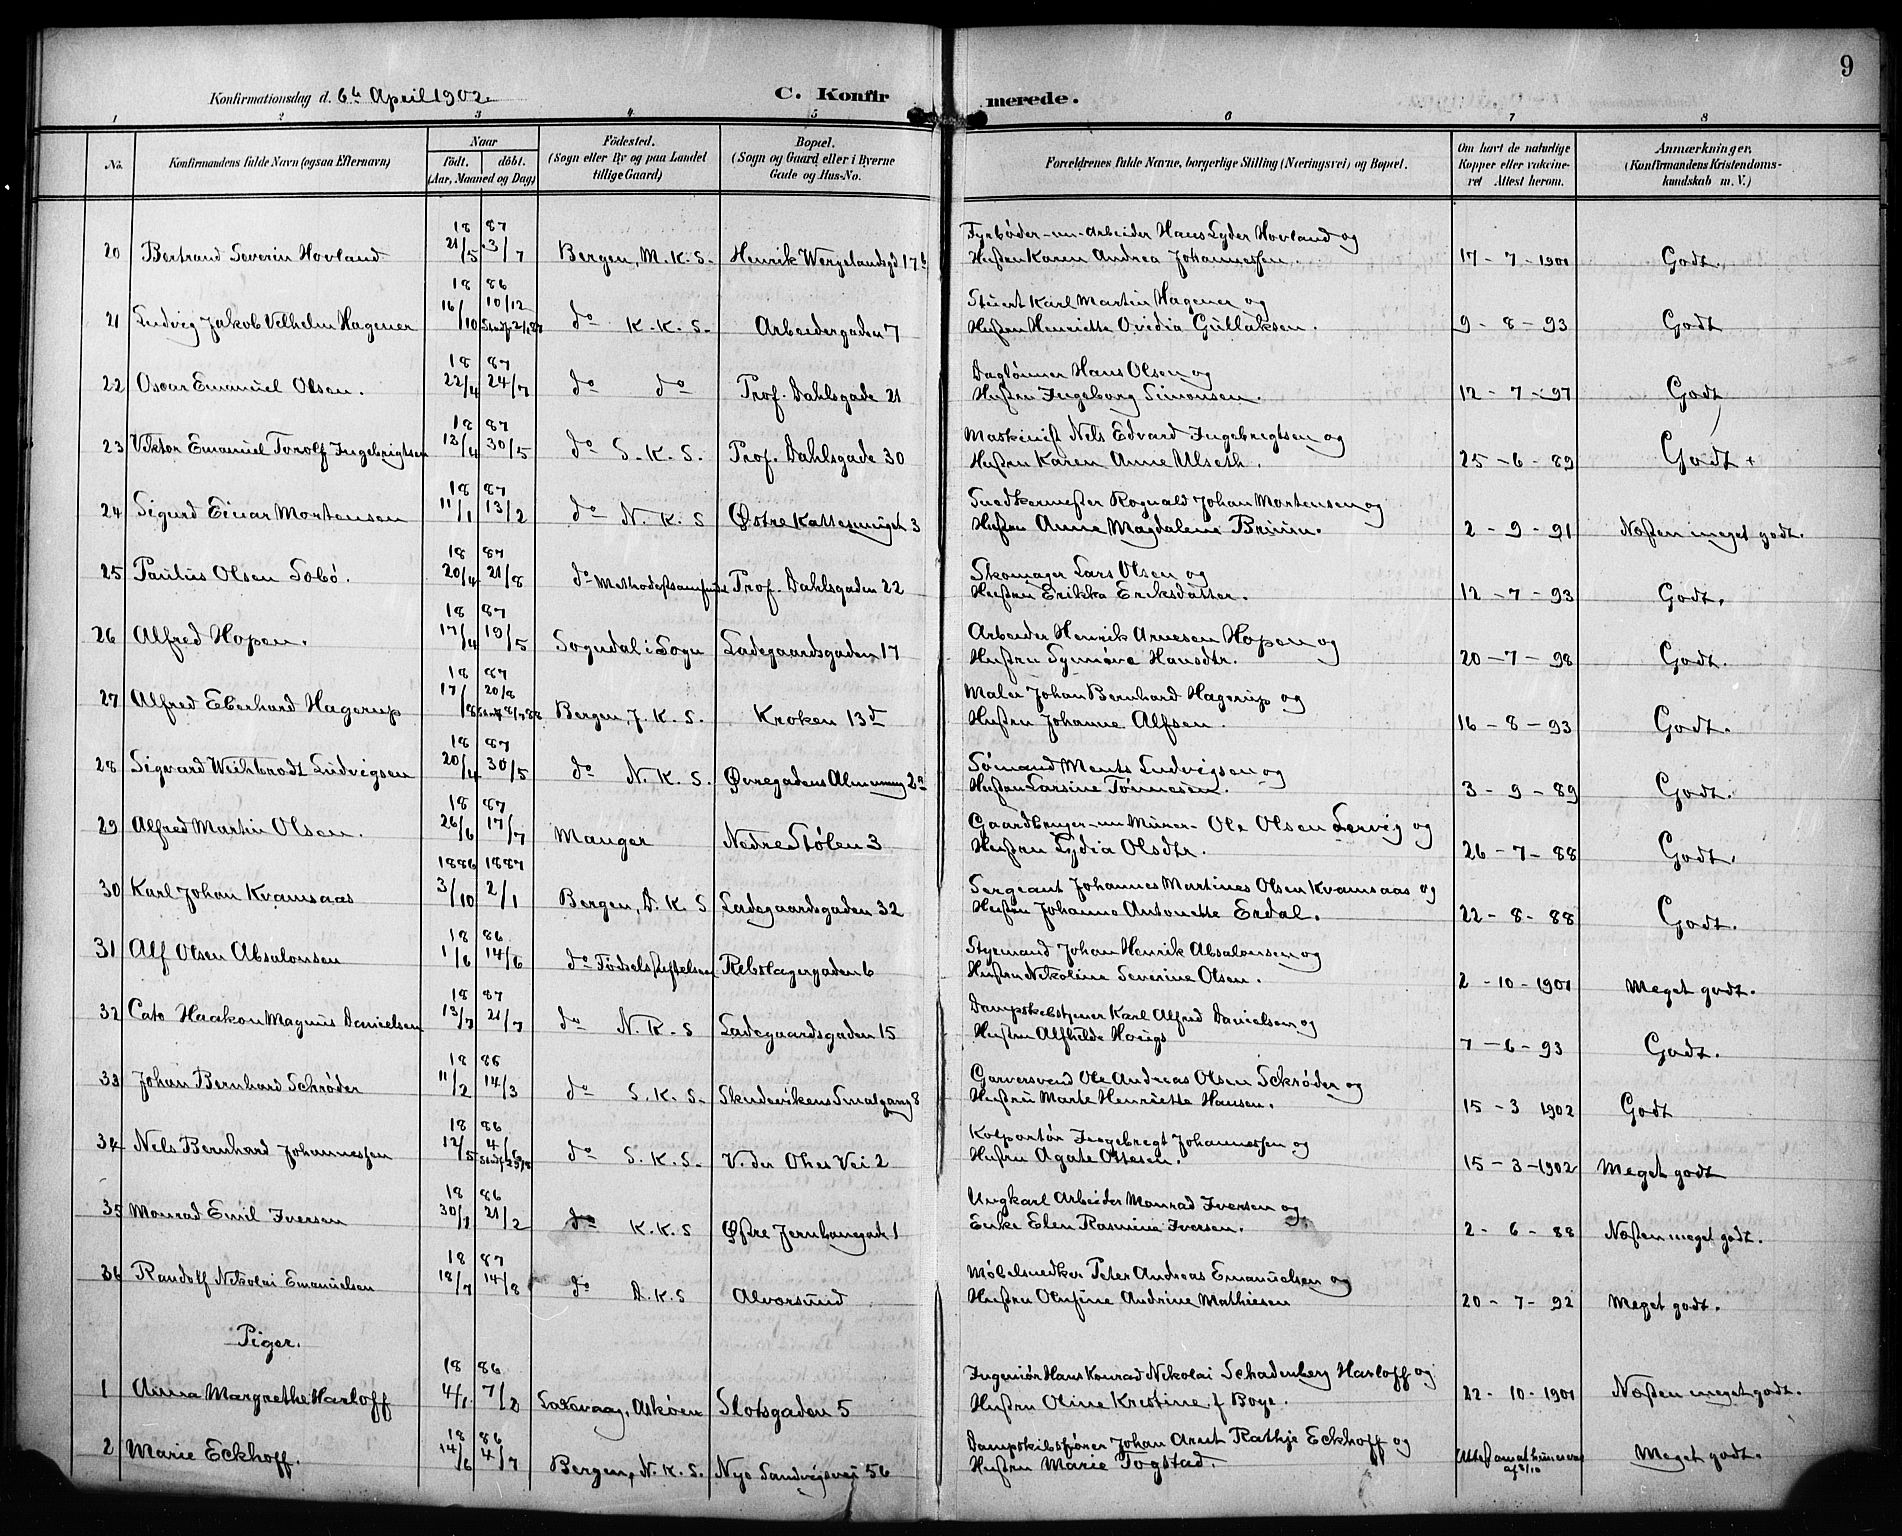 9
Konfirmationsdag d. 6te April 1902.
C. Konfirmerede.
1 2 3 4 5 6 7 8
No. Konfirmandens fulde Navn (ogsaa Efternavn) Naar födt. döbt. (Aar, Maaned og Dag) Födested. (Sogn eller By og paa Landet tillige Gaard) Bopæl. (Sogn og Gaard eller i Byerne Gade og Hus-No. Forældrenes fulde Navne, borgerlige Stilling (Næringsvei) og Bopæl. Om havt de naturlige Kopper eller vakcineret Attest herom. Anmærkninger. (Konfirmandens Kristendomskundskab m. V.)
20 Bertrand Severin Hovland 18 87 21/5 3/7 Bergen, M. K. S. Henrik Wergelandsgd 17b Fyrbøder -nu- Arbeider Hans Lyder Hovland og
Hustru Karen Andrea Johannessen. 17-7-1901 Godt.
21 Ludvig Jakob Vilhelm Hagener 18 86 16/10 10/12 do K. K. S. Arbeidergaden 7 Stuert Karl Martin Hagener og
Hustru Henriette Ovidia Gullaksen. 9-8-93 Godt
22 Oscar Emanuel Olsen. 18 87 22/4 24/7 do do Prof. Dahlsgade 21 Daglønner Hans Olsen og
Hustru Ingeborg Simonsen. 12-7-97 Godt
23 Viktor Emanuel Torolf Ingebrigtsen 18 87 13/4 30/5 do S. K. S. Prof. Dahlsgade 30 Maskinist Nels Edvard Ingebrigtsen og
Hustru Karen Anne Ulseth. 25-6-89 Godt +
24 Sigurd Einar Mortensen 18 87 11/1 13/2 do N. K. S Østre Kattesmuget 3 Snedkermester Rognald Johan Mortensen og
Hustru Anne Magdalene Bruun. 2-9-91 Næsten meget godt.
25 Paulus Olsen Lobø. 18 87 20/4 21/8 do Prof. Dahlsgaden 22 Skomager Lars Olsen og
Hustru Erikka Eriksdatter. 12-7-93 Godt.
26 Alfred Hopen. 18 87 17/4 19/5 Sogndal i Sogn Ladegaardsgaden 17 Arbeider Henrik Arnesen Hopen og
Hustru Synnøve Hansdtr. 20-7-98 Godt.
27 Alfred Eberhard Hagerup 18 87 17/8 20/8 Bergen, J. K. S. Kroken 13d Maler Johan Bernhard Hagerup og
Hustru Johanne Alfsen. 16-8-93 Godt.
28 Sigvard Weihbrodt Ludvigsen 18 87 20/4 30/5 do N. K. S. Øvregadens Almenning 2a Sømand Ments Ludvigsen og
Hustru Larsine Tønnesen. 3-9-89 Godt.
29 Alfred Martin Olsen. 18 87 26/6 17/7 Manger Nedre Stølen 3 Gaardbruger -nu Murer- Ole Olsen Lervig og
Hustru Lydia Olsdtr. 26-7-88 Godt.
30 Karl Johan Kvamsaas 1886 1887 3/10 2/1 Bergen, D. K. S Ladegaardsgaden 32 Sergeant Johannes Martines Olsen Kvamsaas og
Hustru Johanne Antonette Erdal. 22-8-88 Godt.
31 Alf Olsen Absalonsen 18 86 1/6 14/6 do Fødselsstiftelsen Rebslagergaden 6 Styrmand Johan Henrik Absalonsen og
Hustru Nikoline Severine Olsen. 2-10-1901 Meget godt.
32 Cato Haakon Magnus Danielsen 18 87 13/7 21/7 do N. K. S Ladegaardsgaden 15 Dampskibstjener Karl Alfred Danielsen og
Hustru Alfhilde 7-6-93 Godt.
33 Johan Bernhard Schrøder 18 86 11/2 14/3 do S. K. S. Skudevikens Smalgang 8 Garversvend Ole Andreas Olsen Schrøder og
Hustru Marte Henriette Hansen. 15-3 1902 Godt
34 Nels Bernhard Johannessen 18 86 12/5 4/6 do S. K. S. V. der Ohes Vei 2 Kolportør Ingebregt Johannessen og
Hustru Agate Ottesen. 15-3-1902 Meget godt
35 Monrad Emil Iversen 18 86 30/1 21/2 do K. K. S Østre Jernbanegade 1 Ungkarl Arbeider Monrad Iversen og
Enke Elen Rasmine Iversen. 2-6-88 Næsten meget godt.
36 Randolf Nikolai Emanuelsen 18 87 18/7 14/8 do D. K. S Alversund Møbelsnedker Peter Andreas Emanuelsen og
Hustru Olufine Andrine Mathiesen 20-7-92 Meget godt.
Piger.
1 Anna Margrethe Harloff 18 86 4/1 7/2 Laksevaag, Askøen Slotsgaden 5 Ingeniør Hans Konrad Nikolai Schadenberg Harloff og
Hustru Oline Kristine f Boye. 22-10-1901 Næsten meget godt.
2 Marie Eckhoff. 18 86 14/6 4/7 Bergen, N. K. S. Nye Sandvigsvei 56 Dampskibsfører Johan Arnt Rathje Eckhoff og
Hustru Marie Togstad. Meget godt.